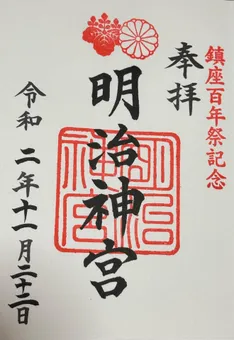 鎮座百年祭記念
奉拝
明治神宮
令和二年十一月二十二日
明治神宮